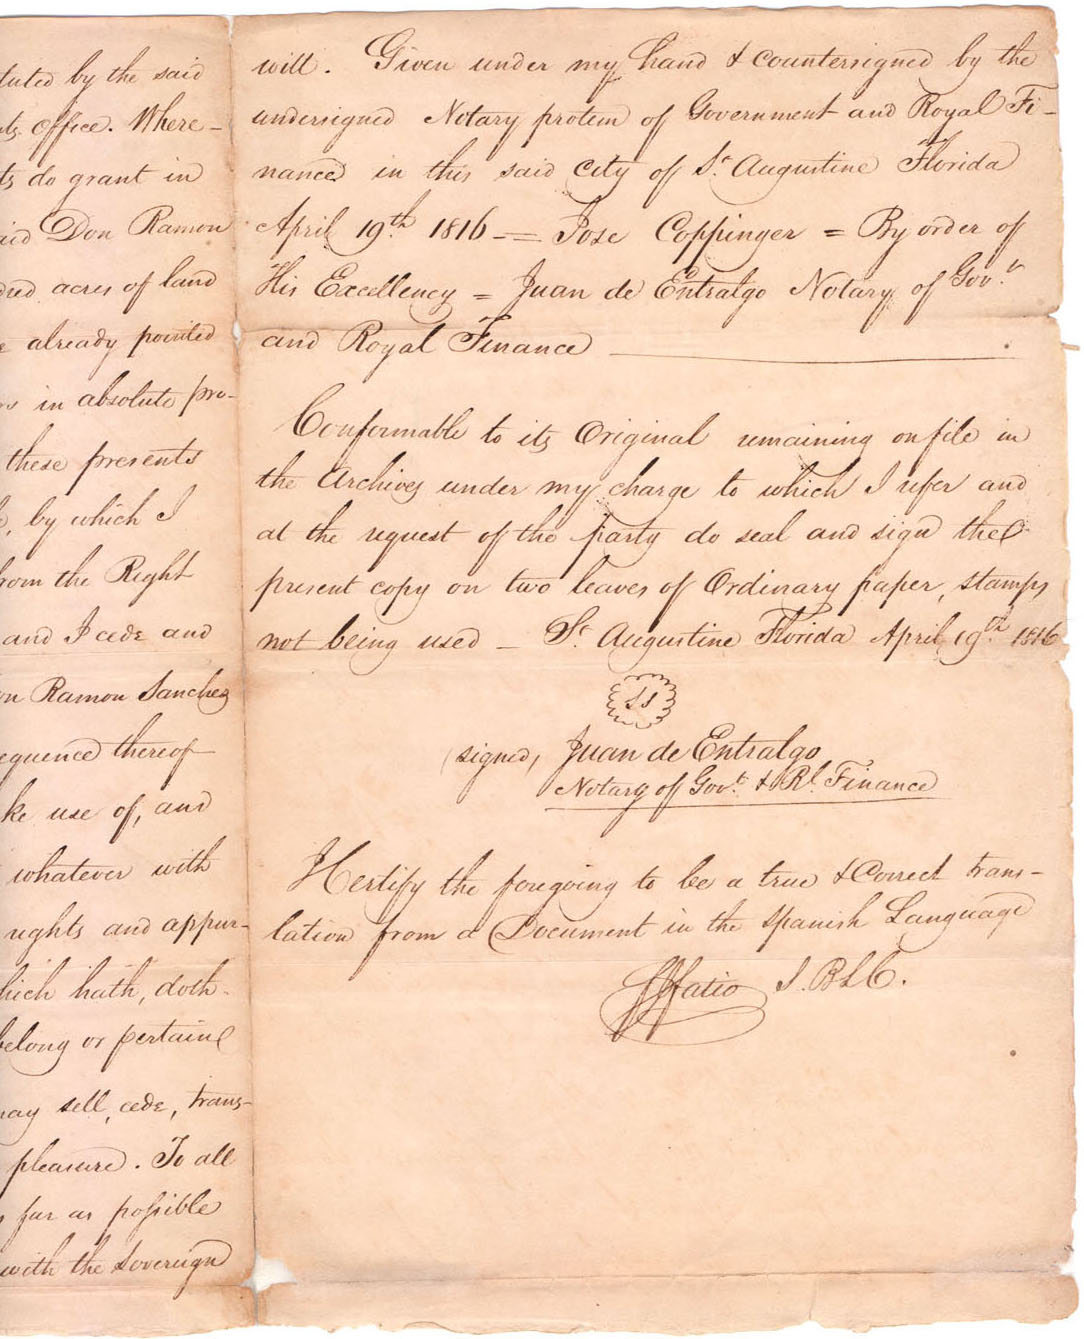 tuted by the said
ts office. Where-
ts do grant in
aid Don Ramon
dred acres of land
e already pointed
rs in absolute pro-
these presents
e, by which I
from the Right
and I cede and
on Ramon Sanchez
equence thereof
ke use of, and
whatever with
rights and appur-
hich hath, doth
belong or pertain
may sell, cede, trans-
pleasure. To all
s far as possible
with the Sovereign
will. Given under my hand & countersigned by the
undersigned Notary protem of Government and Royal Fi-
nance in this said City of St. Augustine Florida
April 19th. 1816 - = Jose Coppinger = By order of
His Excellency = Juan de Entralgo Notary of Govt.
and Royal Finance
Conformable to its Original remaining on file in
the Archives under my charge to which I refer and
at the request of the party do seal and sign the
present copy on two leaves of Ordinary paper, stamps
not being used - St. Augustine Florida April 19th. 1816
LS
(signed) Juan de Entralgo
Notary of Govt. & Rl. Finance
I Certify the foregoing to be a true & Correct trans-
lation from a Document in the Spanish Language
Fatio S.B.L.C.